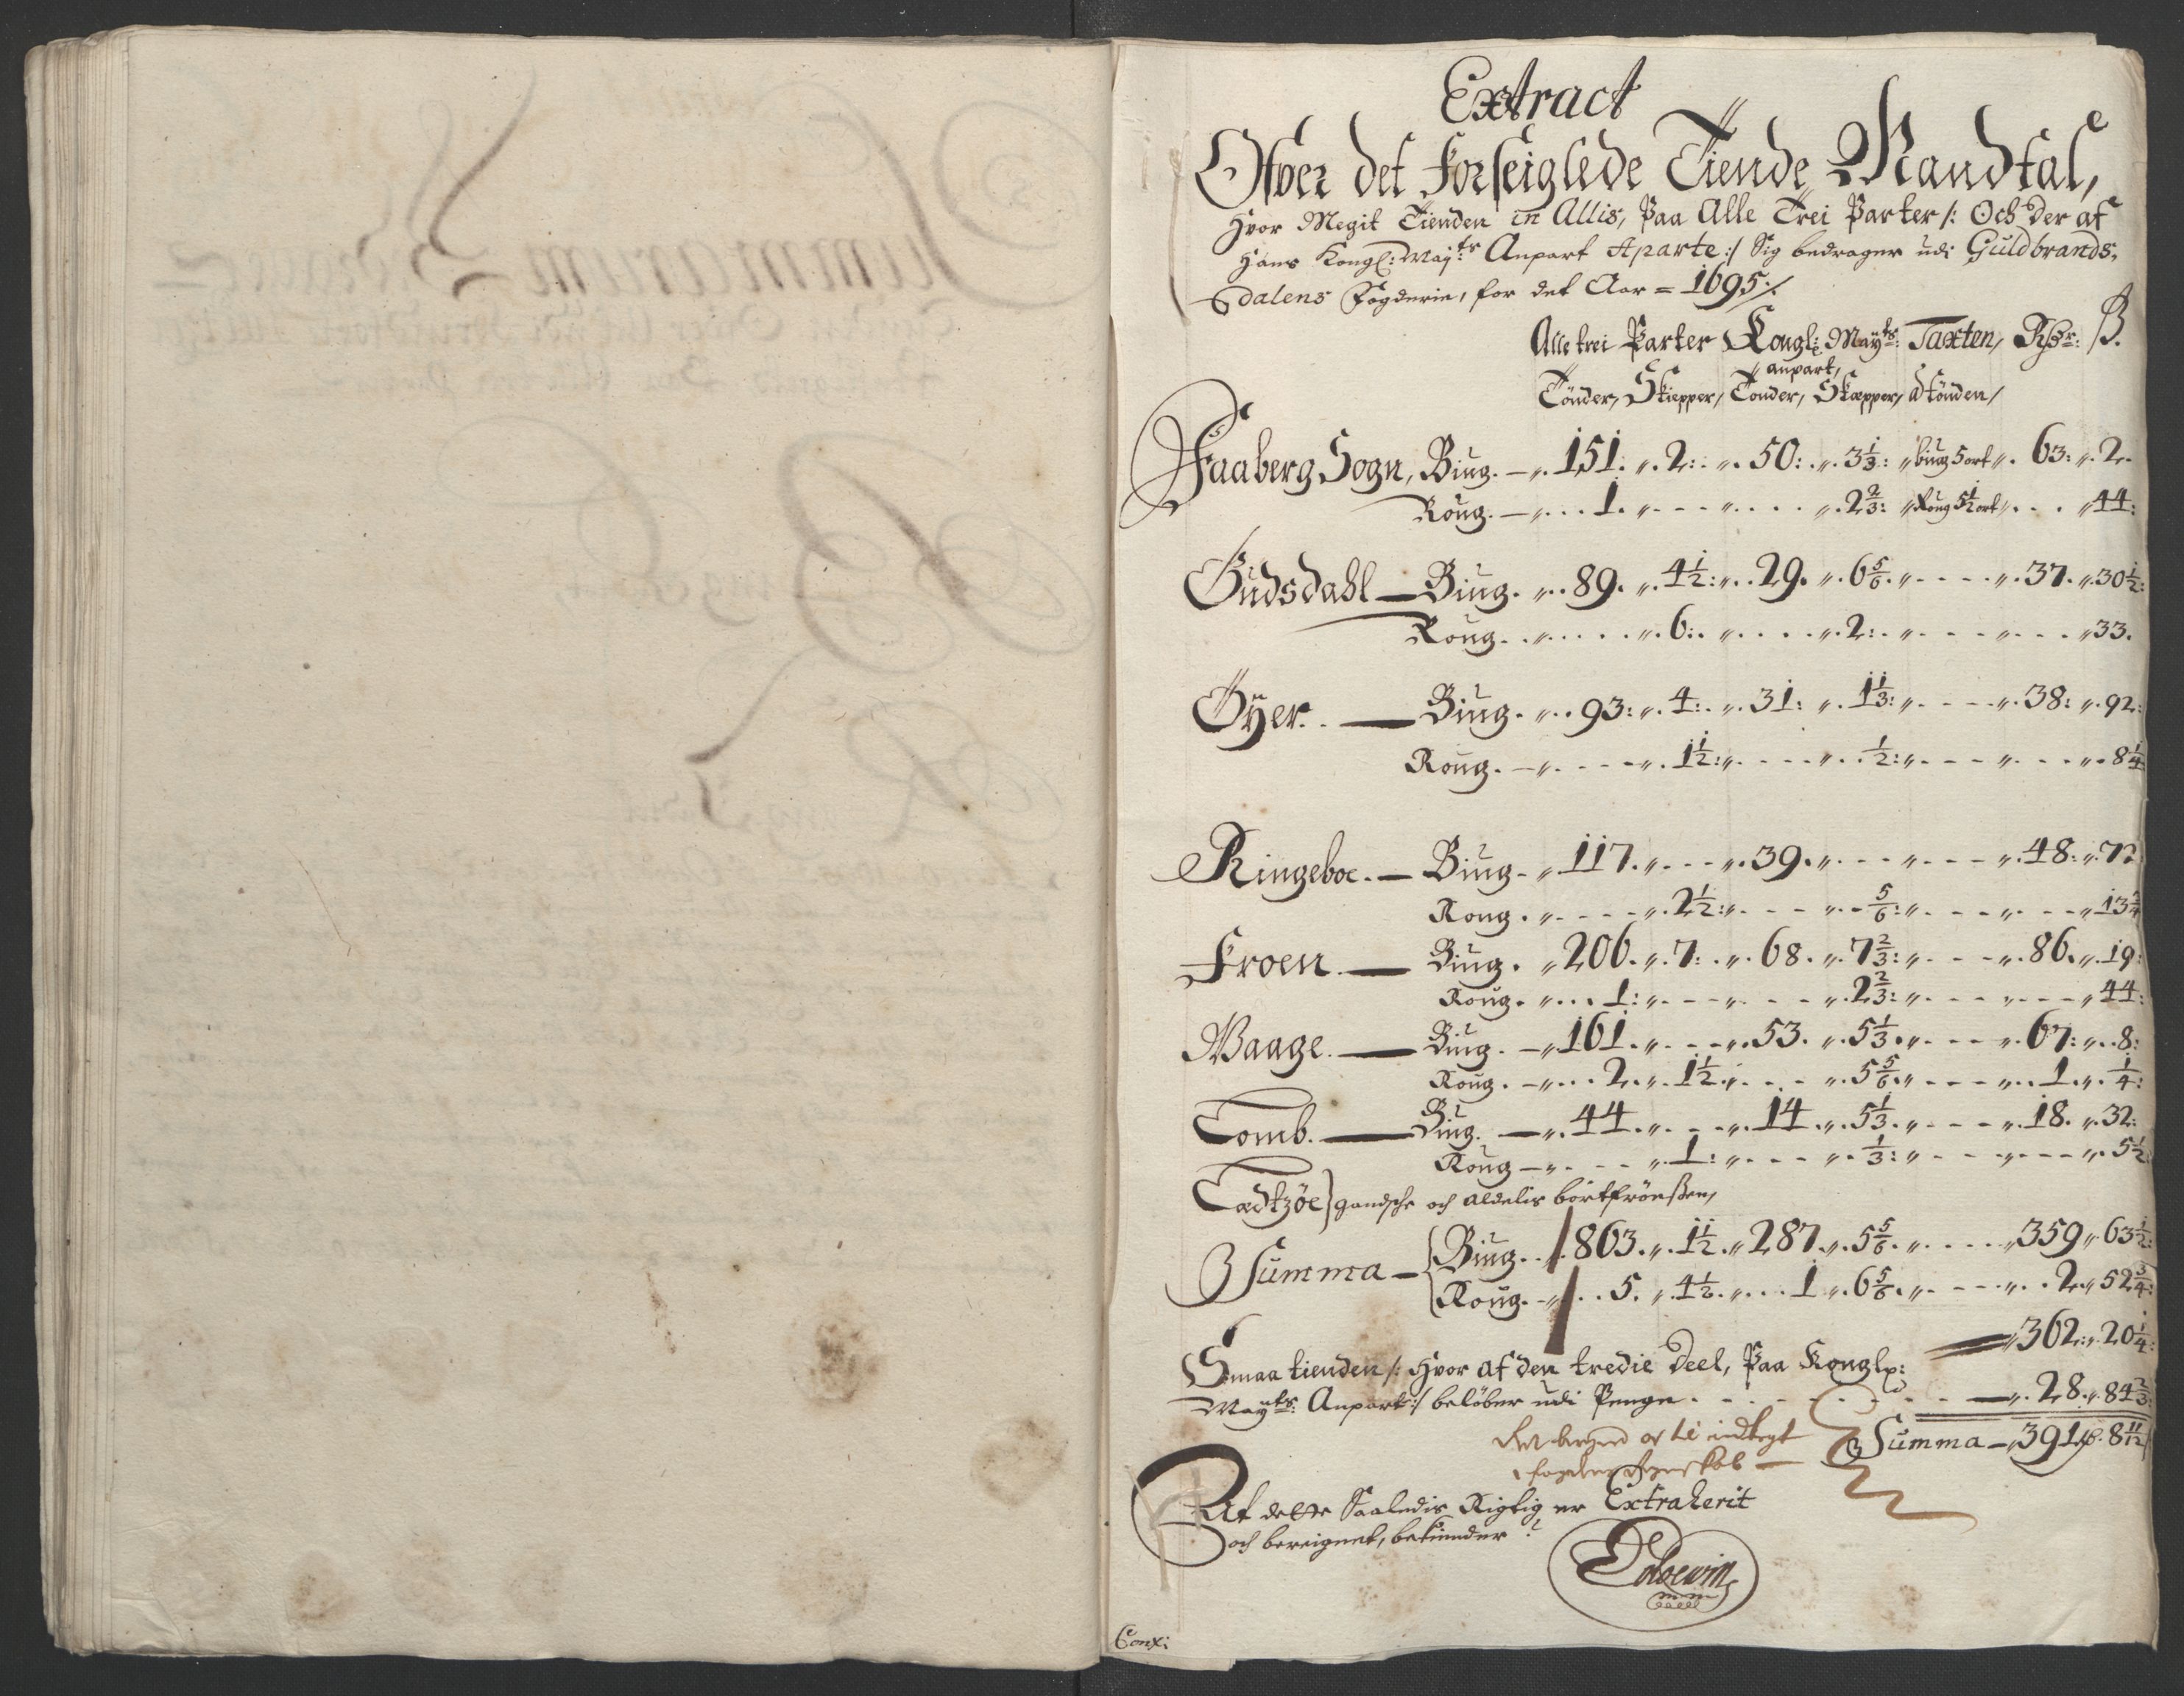 Extract
Ofver det Forseiglede Tiende Mandtal,
Hvor Megit Tienden in Allis, Paa Alle Trei Parter /: Och der af
Hans Kongl: Maj:ts Anpart Aparte :/ Sig bedrager udi Guldbrands-
dalens Fogderie, for det Aar = 1695 /.
Alle trei Parter Kongl: Maÿts: Taxten, Rdr: ß.
anpart,
Tönder, Skiepper, Tonder, Skæpper, a tönden,
Faaberg Sogn, Biug. 151. 2: 50: 3 1/3: biug 5 ort 63: 2.
Roug. 1. 2 2/3: Roug 5 1/2 ort 44:
Gudsdahl Biug. 89. 4 1/2: 29. 6 5/6. 37. 30 1/2:
Roug. 6: 2: 33.
Öÿer. Biug. 93: 4: 31: 1 1/3: 38: 92:
Roug. 1 1/2: 1/2: 8 1/4
Ringeboe. Biug 117. 39. 48: 72
Roug. 2 1/2: 5/6: 13 3/4
Froen. Biug. 206. 7: 68. 7 2/3: 86. 19:
Roug. 1: 2 2/3: 44:
Waage. Biug. 161. 53. 5 1/3. 67: 8:
Roug. 2. 1 1/2. 5 5/6. 1. 1/4:
Lomb. Biug. 44. 14. 5 1/3. 18. 32:
Roug 1: 1/3: 5 1/2
Lædtzöe } gandsche och aldelis bortfrönssen,
Summa { Biug. 863. 1 1/2. 287. 5 5/6. 359 63 1/2:
Roug. 5. 4 1/2. 1 6 5/6. 2. 52 3/4:
362: 20 1/4:
Smaa tienden /: Hvor af den tredie Deel, Paa Konglx:
Mayts: Anpart :/ belöber udi Penge. 28. 84 2/3:
Summa 391 8 11/12
At dette Saaledis Rigtig er Extraherit
och bereignet, bekiender